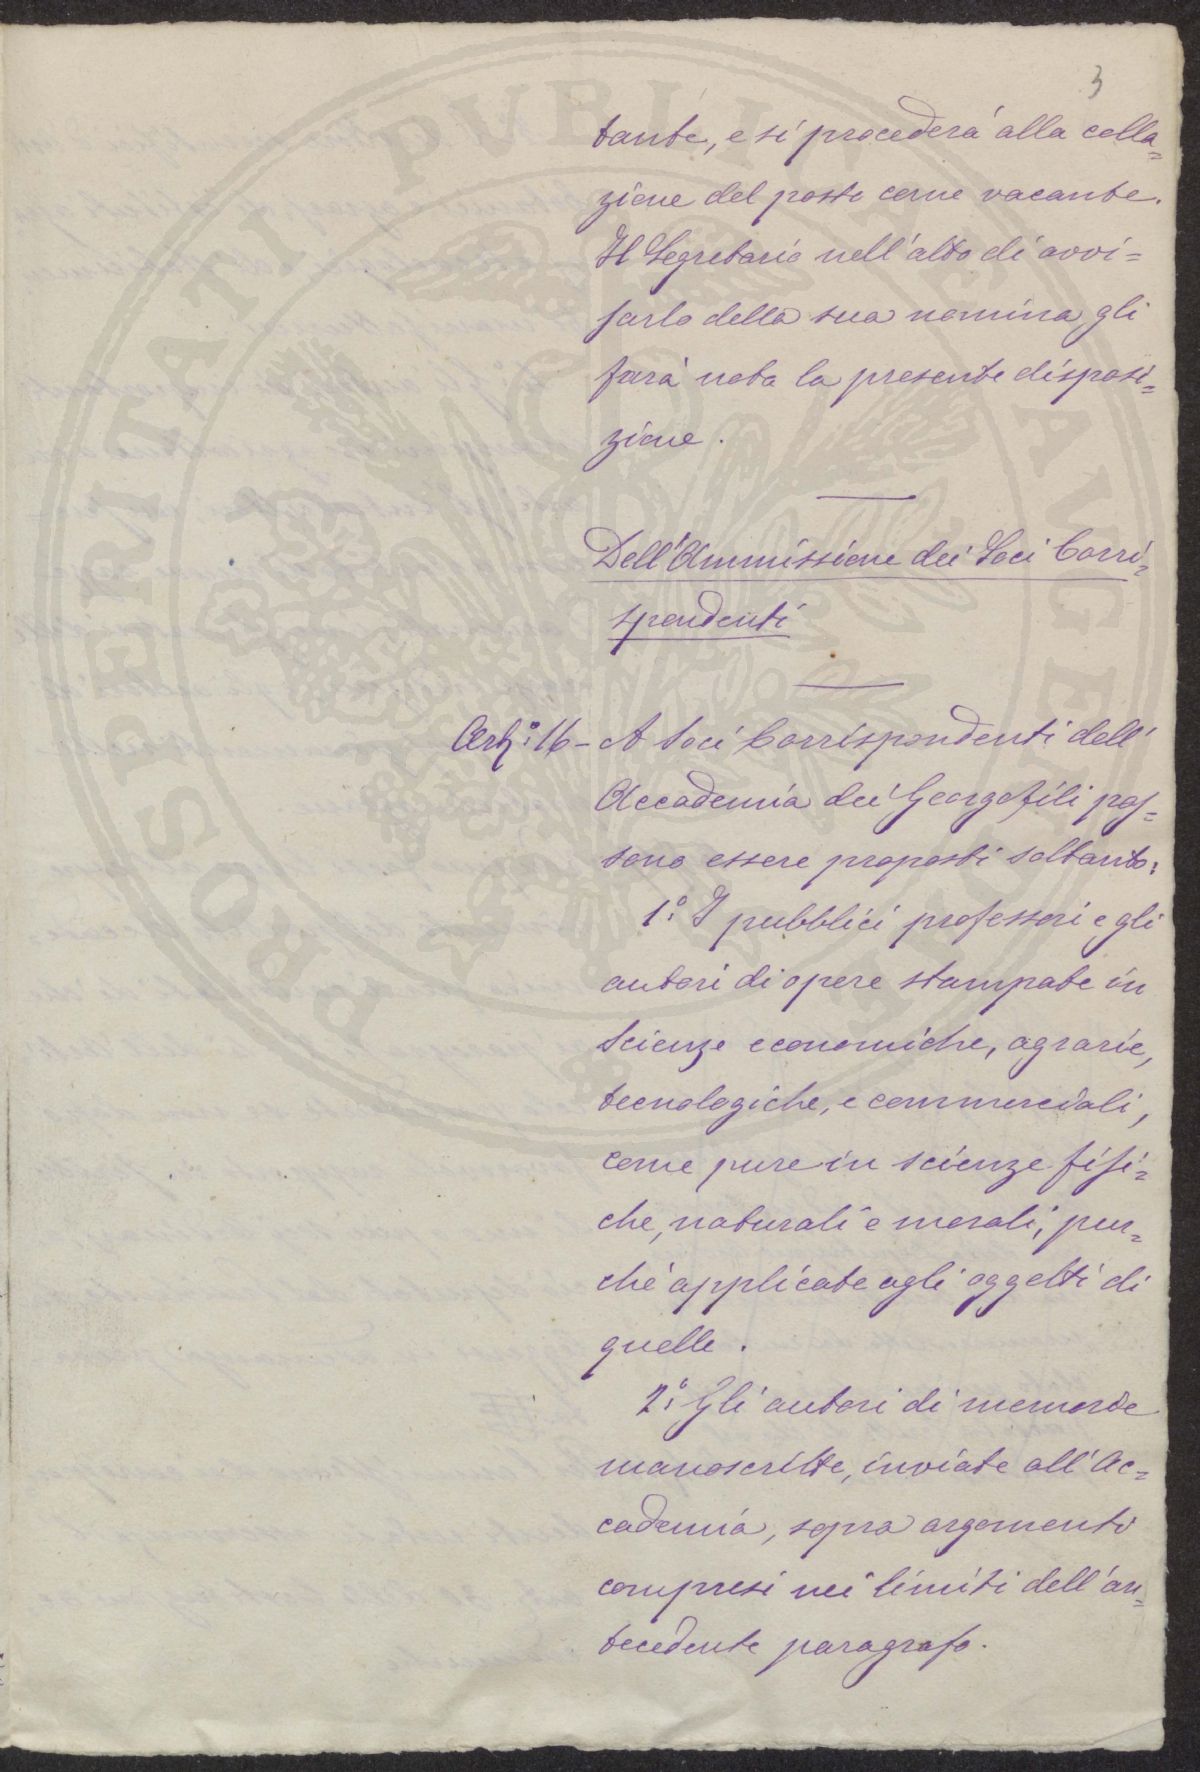 3
tante, e si procederà alla colla=
zione del posto come vacante.
Il Segretario nell'atto di avvi=
sarlo della sua nomina, gli
farà nota la presente disposi=
zione.
Dell'Ammissione dei Soci Corri=
spondenti
Art.° 16 – A Soci Corrispondenti dell'
Accademia dei Georgofili pos=
sono essere proposti soltanto:
1.° I pubblici professori e gli
autori di opere stampate in
Scienze economiche, agrarie,
tecnologiche, e commerciali,
come pure in scienze fisi=
che, naturali e morali, pur=
chè applicate agli oggetti di
quelle.
2.° Gli autori di memorie
manoscritte, inviate all'Ac=
cademia, sopra argomenti
compresi nei limiti dell'an=
tecedente paragrafo.
PROSPERITATI PUBLICAE AUGENDAE